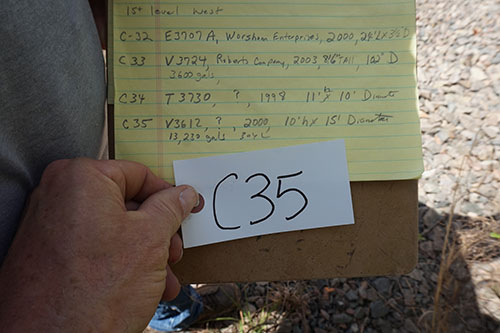 1st level west
C-32 E3707A, Worsham Enterprises, 2000,
C33 V3724, Roberts Company, 2003, 8'6" Tall, 102" D
3600 gals,
C34 T3730, ?, 1998 11' h x 10' Diameter
C35 V3612, ?, 2000, 10' h x 15' Diameter
13,230 gals
C35